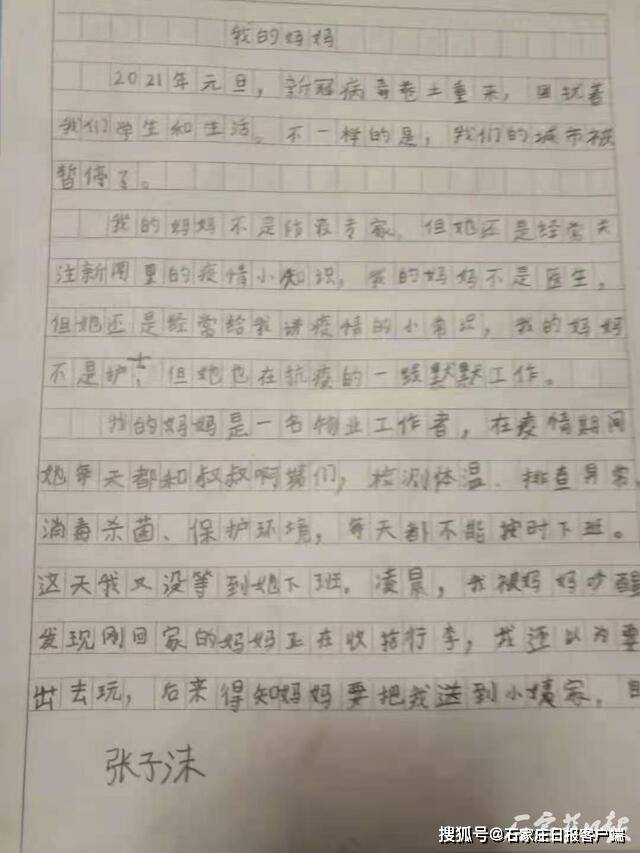 我的妈妈
2021年元旦，新冠病毒卷土重来，困扰着
我们学生和生活。不一样的是，我们的城市被
暂停了。
我的妈妈不是防疫专家，但她还是经常关
注新闻里的疫情小知识，我的妈妈不是医生，
但她还是经常给我讲疫情的小常识，我的妈妈
不是护士，但她也在抗疫的一线默默工作。
我的妈妈是一名物业工作者，在疫情期间
她每天都和叔叔啊姨们，检测体温、排查异常，
消毒杀菌、保护环境，每天都不能按时下班。
这天我又没等到她下班。凌晨，我被妈妈吵醒
发现刚回家的妈妈正在收拾行李，我还以为要
出去玩，后来得知妈妈要把我送到小姨家，自
张子沫
石家庄日报
搜狐号@石家庄日报客户端